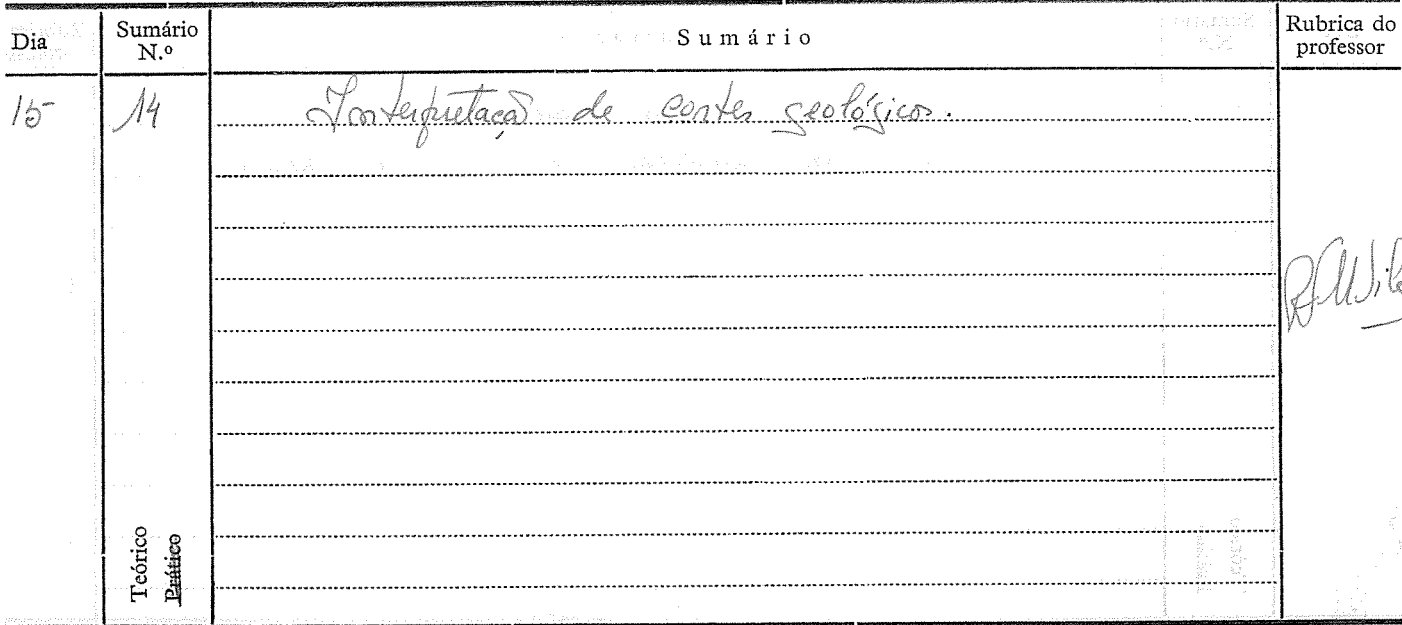 Dia
Sumário N.º
Sumário
Rubrica do professor
15
14
Interpretação de cortes geológicos.
Teórico
Prático